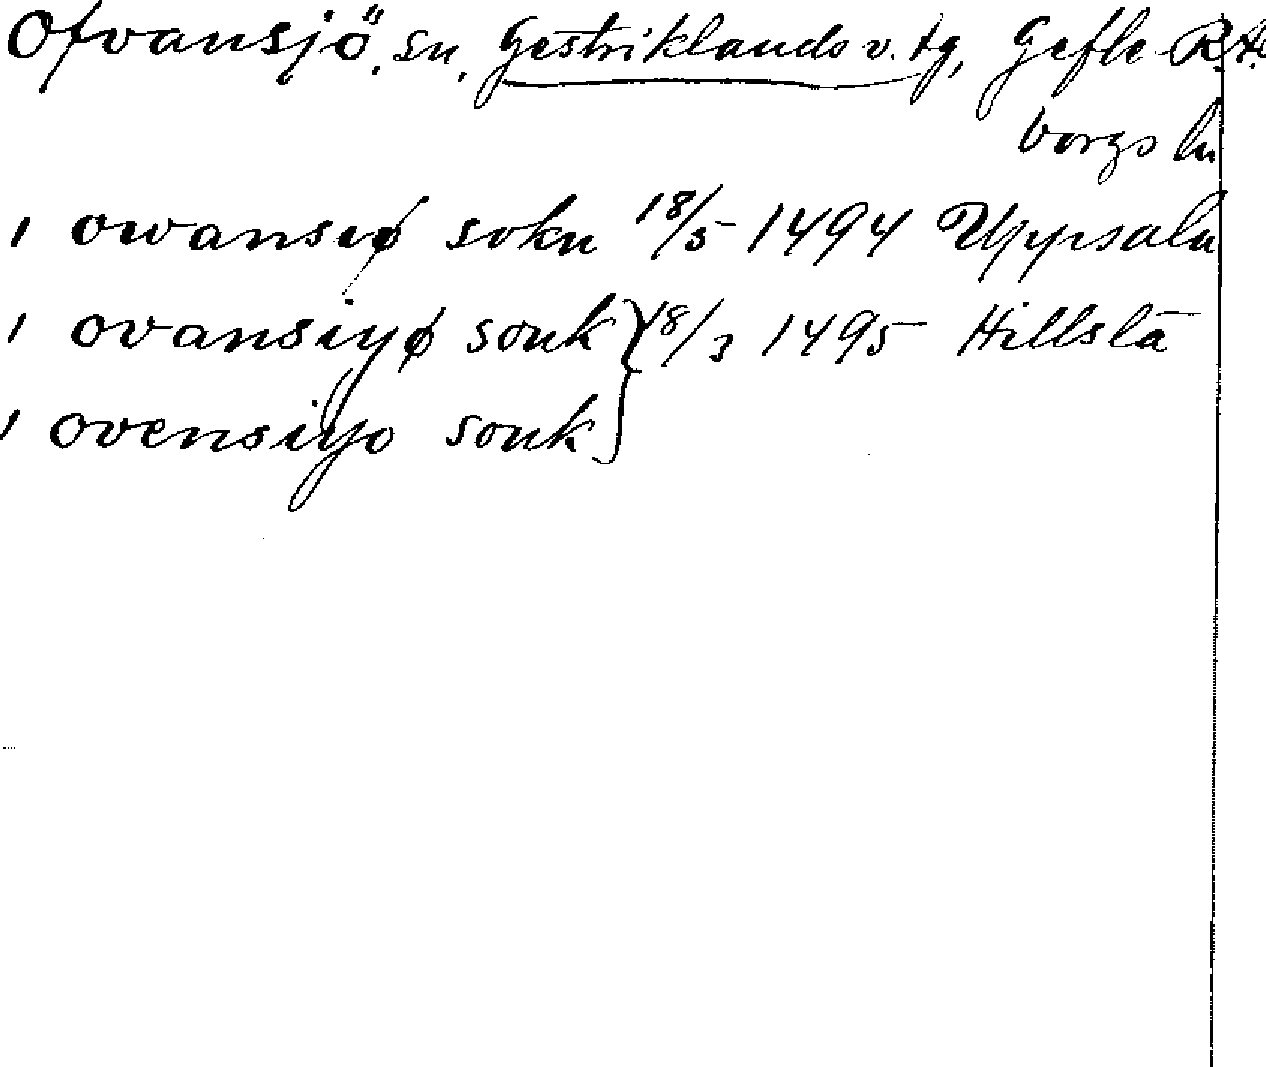 Ofvansjö, sn, Gestriklands v. tg, Gefle- R.A.
borgs ln
1 owansiø sokn 18/5 1494 Uppsala
1 ovansiyø souk } 18/3 1495 Hillsta
1 ovensiyo souk